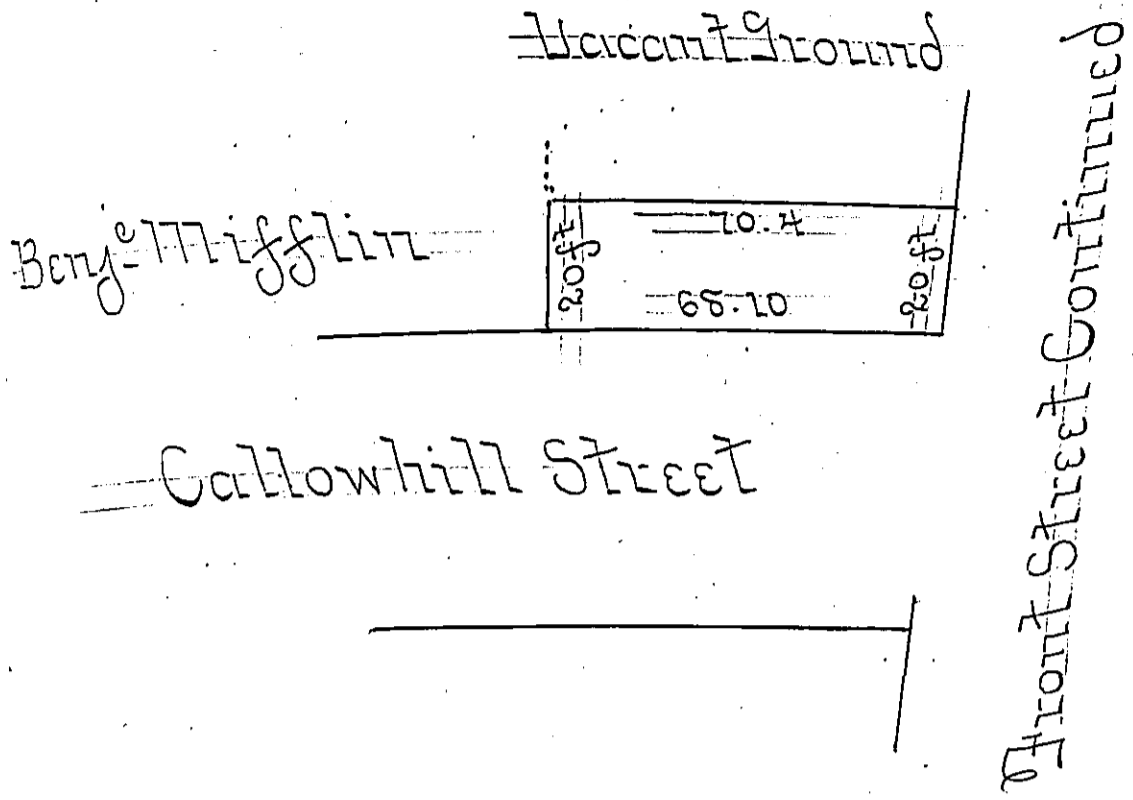 Vacant Ground
Benjᵉ Mifflin
20ft
70.4
68.10
20ft
Callowhill Street
Front Street Continued